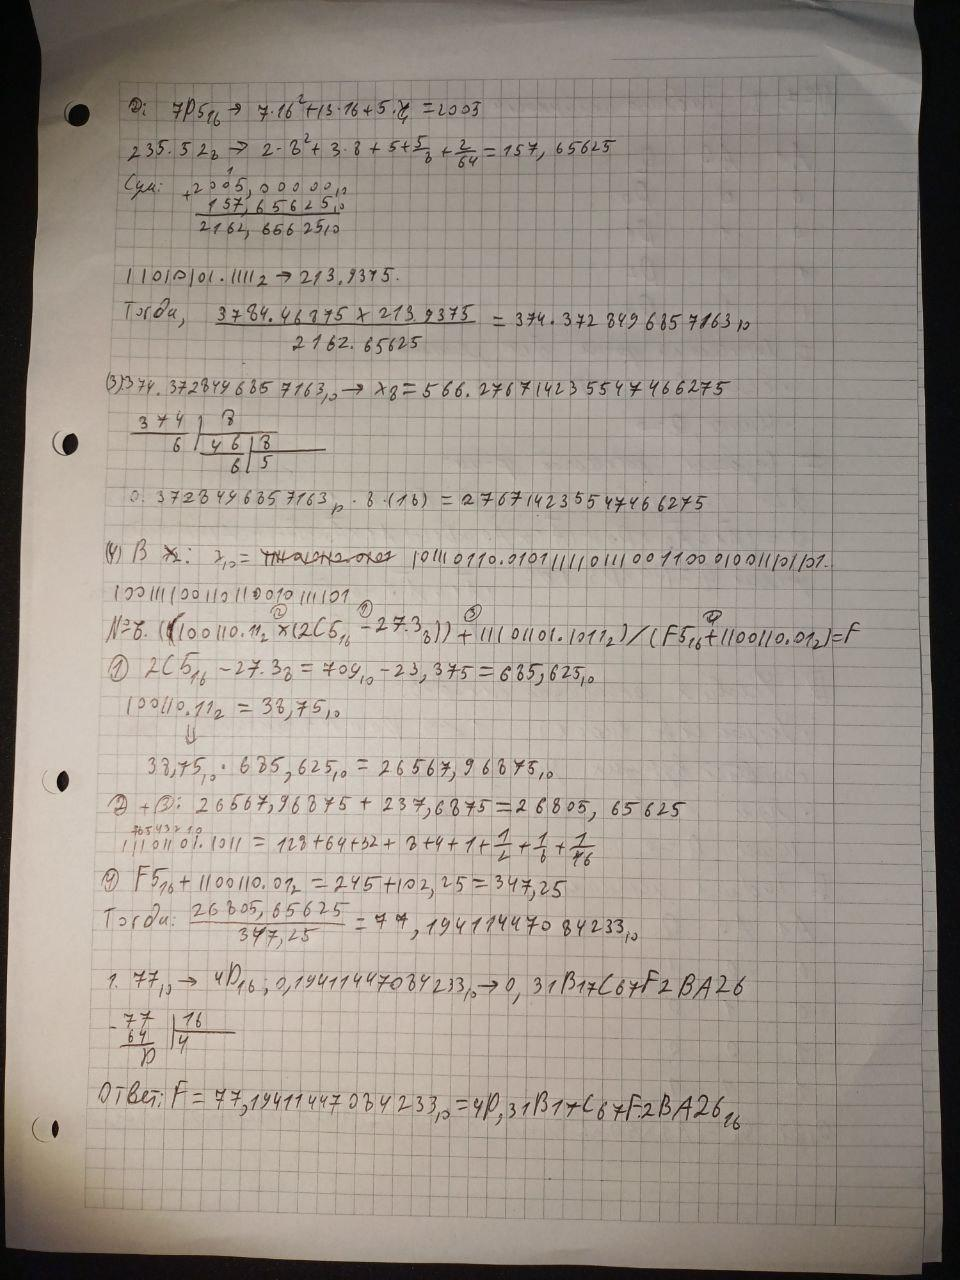 ②: 7D5₁₆ → 7·16²+13·16+5 = 2005
235.52₈ → 2·8²+3·8+5+5/8+2/64=157,65625
Сум: +2005,00000₁₀
157,65625₁₀
2162,65625₁₀
11010101.1111₂ → 213.9375.
Тогда, (3784.46875 × 213.9375)/2162.65625 = 374.3728496857163₁₀
(3) 374.3728496857163₁₀ → x₈ = 566.27671423554 7466275
374 | 8
6 | 46 | 8
6 | 5
0.3728496857163₁₀ · 8·(18) = 276714235547466275
(4) В x₂: x₁₀ = 101110110.01011111011100110001001110
100111100110110010111101
№8. ((100110.11₂ × (2C5₁₆ − 27.3₈)) + 11101101.1011₂) / (F5₁₆ + 1100110.01₂) = F
① 2C5₁₆ − 27.3₈ = 709₁₀ − 23,375 = 685,625₁₀
100110.11₂ = 38,75₁₀
⇓
38,75₁₀ · 685,625₁₀ = 26567,96875₁₀
② + ③: 26567,96875 + 237,6875 = 26805,65625
76543210
11101101.1011 = 128+64+32+8+4+1+1/2+1/8+1/16
④ F5₁₆ + 1100110.01₂ = 245+102,25 = 347,25
Тогда: 26805,65625/347,25 = 77,19411447084233₁₀
1. 77₁₀ → 4D₁₆; 0,19411447084233₁₀ → 0,31B17C67F2BA26
- 77 | 16
64 | 4
D
Ответ: F = 77,19411447084233₁₀ = 4D,31B17C67F2BA26₁₆